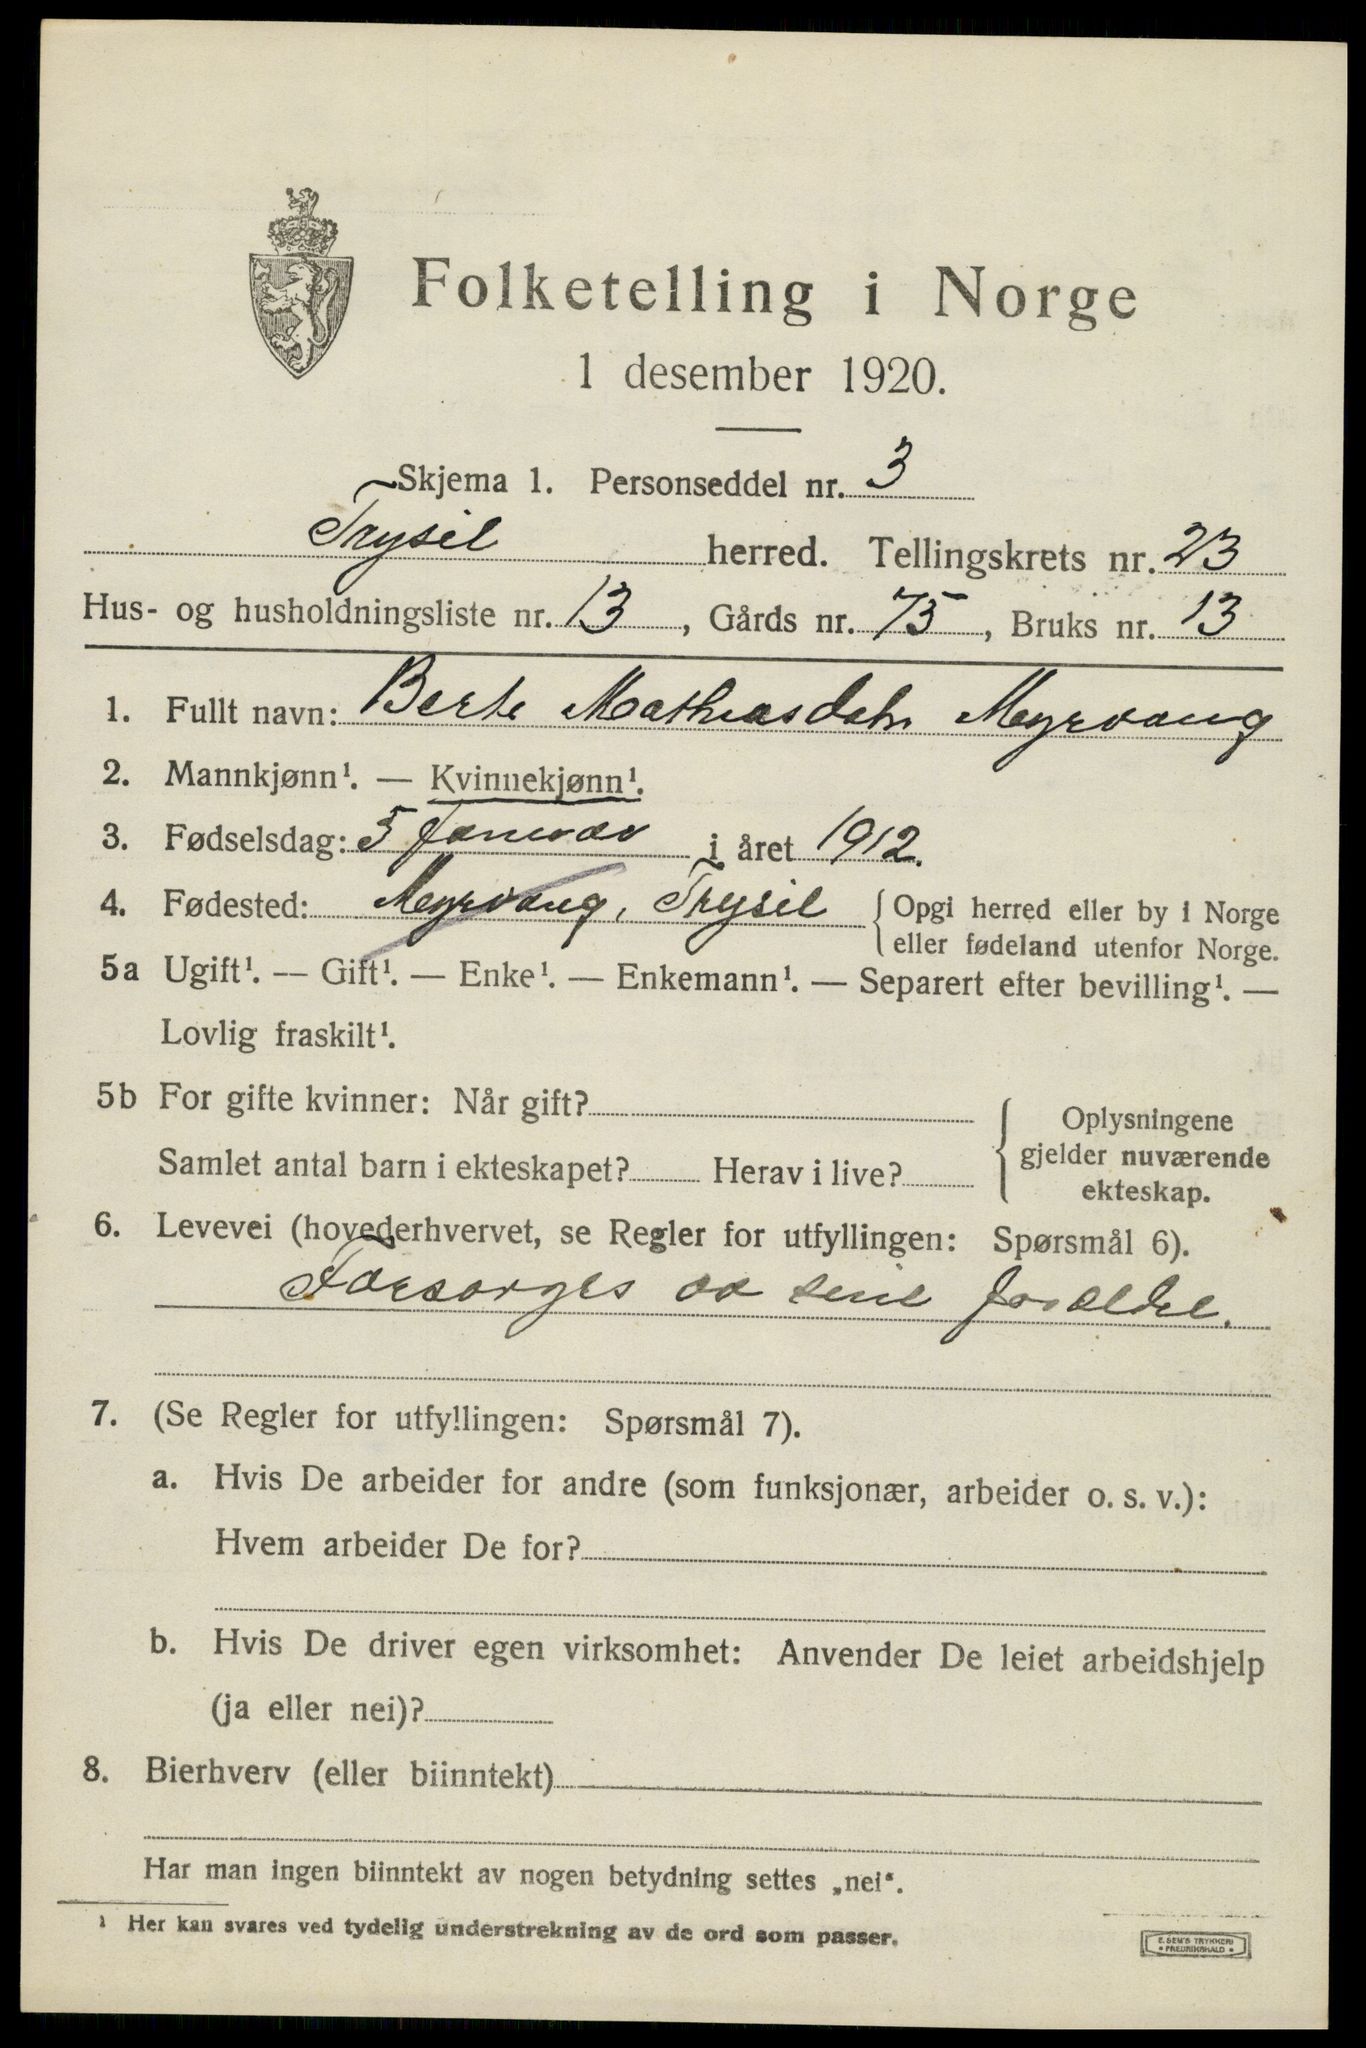 Folketelling i Norge
1 desember 1920.
Skjema 1. Personseddel nr. 3
Trysil herred. Tellingskrets nr. 23
Hus- og husholdningsliste nr. 13, Gårds nr. 75, Bruks nr. 13
1. Fullt navn: Berte Mathiasdatr Myrvang
2. Mannkjønn¹. — Kvinnekjønn¹.
3. Fødselsdag: 5 Januar i året 1912.
4. Fødested: Myrvang, Trysil {Opgi herred eller by i Norge
eller fødeland utenfor Norge.
5a Ugift¹. — Gift¹. — Enke¹. — Enkemann¹. — Separert efter bevilling¹. —
Lovlig fraskilt¹.
5b For gifte kvinner: Når gift?
Samlet antal barn i ekteskapet? Herav i live?
Oplysningene
gjelder nuværende
ekteskap.
6. Levevei (hovederhvervet, se Regler for utfyllingen: Spørsmål 6).
Forsørges av sine
7. (Se Regler for utfyllingen: Spørsmål 7).
a. Hvis De arbeider for andre (som funksjonær, arbeider o. s. v.):
Hvem arbeider De for?
b. Hvis De driver egen virksomhet: Anvender De leiet arbeidshjelp
(ja eller nei)?
8. Bierhverv (eller biinntekt)
Har man ingen biinntekt av nogen betydning settes „nei“.
¹ Her kan svares ved tydelig understrekning av de ord som passer.
E. SEM'S TRYKKERI
• FREDRIKSHALD •